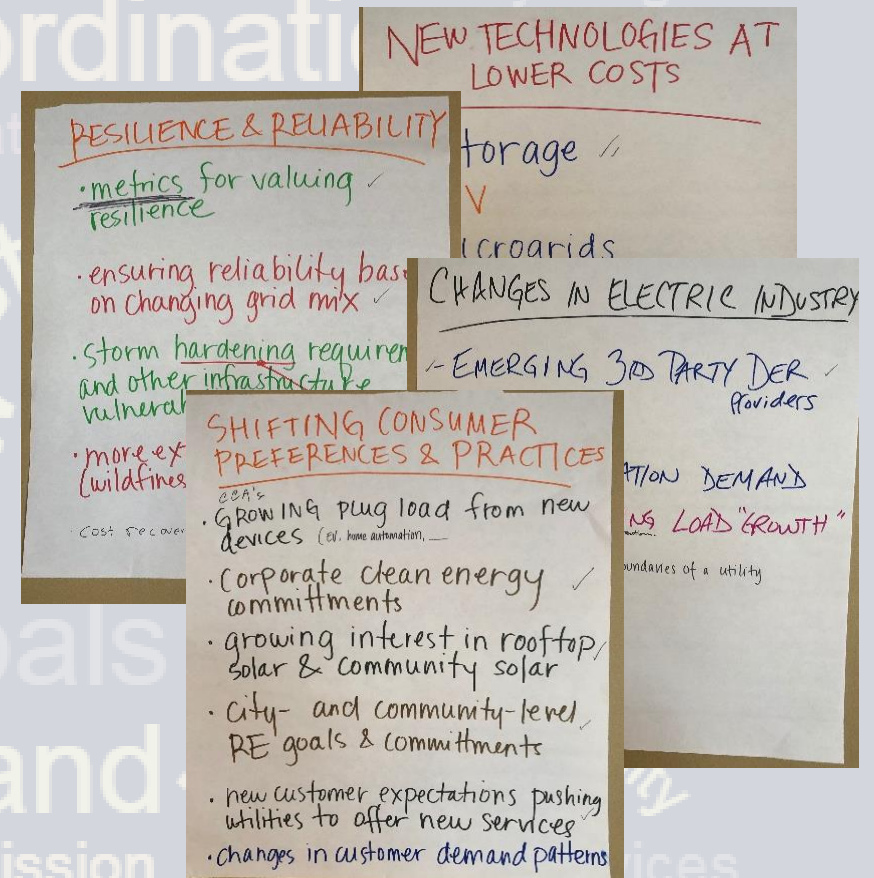 rdinati
NEW TECHNOLOGIES AT
LOWER COSTS
torage
V
icrogrids
RESILIENCE & RELIABILITY
• metrics for valuing
resilience
• ensuring reliability bas
on changing grid mix
• Storm hardening requirem
and other infrastructure
vulnerab
• more ex
(wildfires
• Cost recover
CHANGES IN ELECTRIC INDUSTRY
- EMERGING 3RD PARTY DER
Providers
ATION DEMAND
NG LOAD "GROWTH"
oundaries of a utility
SHIFTING CONSUMER
PREFERENCES & PRACTICES
CCA's
• GROWING plug load from new
devices (EV, home automation, __
• Corporate clean energy
committments
• growing interest in rooftop
solar & community solar
• city- and community-level
RE goals & committments
• new customer expectations pushing
utilities to offer new services
• changes in customer demand patterns
oals
and
ission
ices